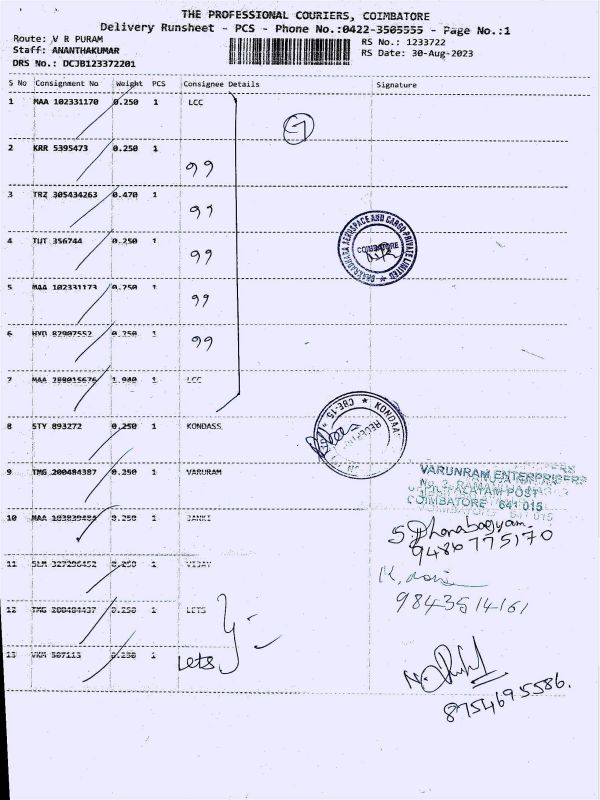 THE PROFESSIONAL COURIERS, COIMBATORE
Delivery Runsheet - PCS - Phone No.:0422-3505555 - Page No.:1
Route: V R PURAM
RS No.: 1233722
Staff: ANANTHAKUMAR
RS Date: 30-Aug-2023
DRS No.: DCJB123372201
S No Consignment No Weight PCS Consignee Details Signature
1 MAA 102331170 0.250 1 LCC
7
2 KRR 5395473 0.250 1
99
3 TRZ 305434263 0.470 1
99
4 TUT 356744 0.250 1
99
COIMBATORE
5 MAA 102331173 0.250 1
99
6 HYD 82907552 0.250 1
99
7 MAA 288015676 1.940 1 LCC
8 STY 893272 0.250 1 KONDASS
CBE-15
9 TMG 200484387 0.250 1 VARURAM
VARUNRAM ENTERPRISERS
COIMBATORE 641 015
10 MAA 0.250 1 JANKI
S. Dhanabagyam
9486775170
11 SLM 0.250 1 VIJAY
9843514161
12 TMG 200484437 0.250 1 LETS
13 VKM 507113 0.250 1 Lets
8754695586.